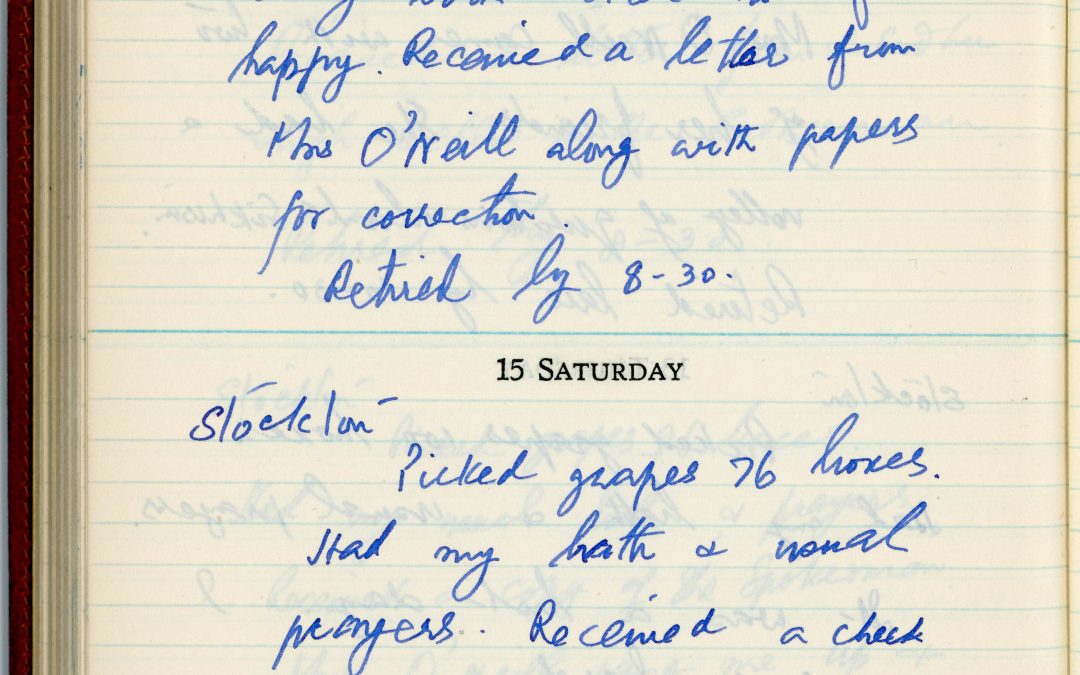 happy. Received a letter from
Mrs O'Neill along with papers
for correction.
Retired by 8-30.
15 SATURDAY
Stockton
Picked grapes 76 boxes.
Had my bath & usual
prayers. Received a check